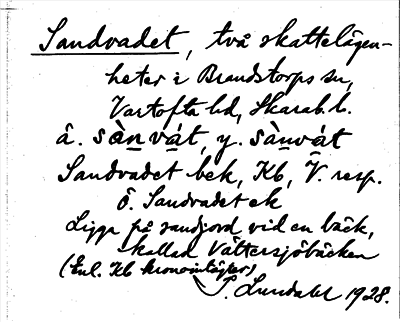 Sandvadet, två skattelägen-
heter i Brandstorps sn,
Vartofta hd, Skarab. l.
ä. sànvát, y. sànvát
Sandvadet bek, Kb, V. resp.
Ö. Sandvadet ek
Ligga på sandjord vid en bäck,
kallad Vättersjöbäcken
(Enl. Kb kronointäkter)
S. Lundahl 1928.